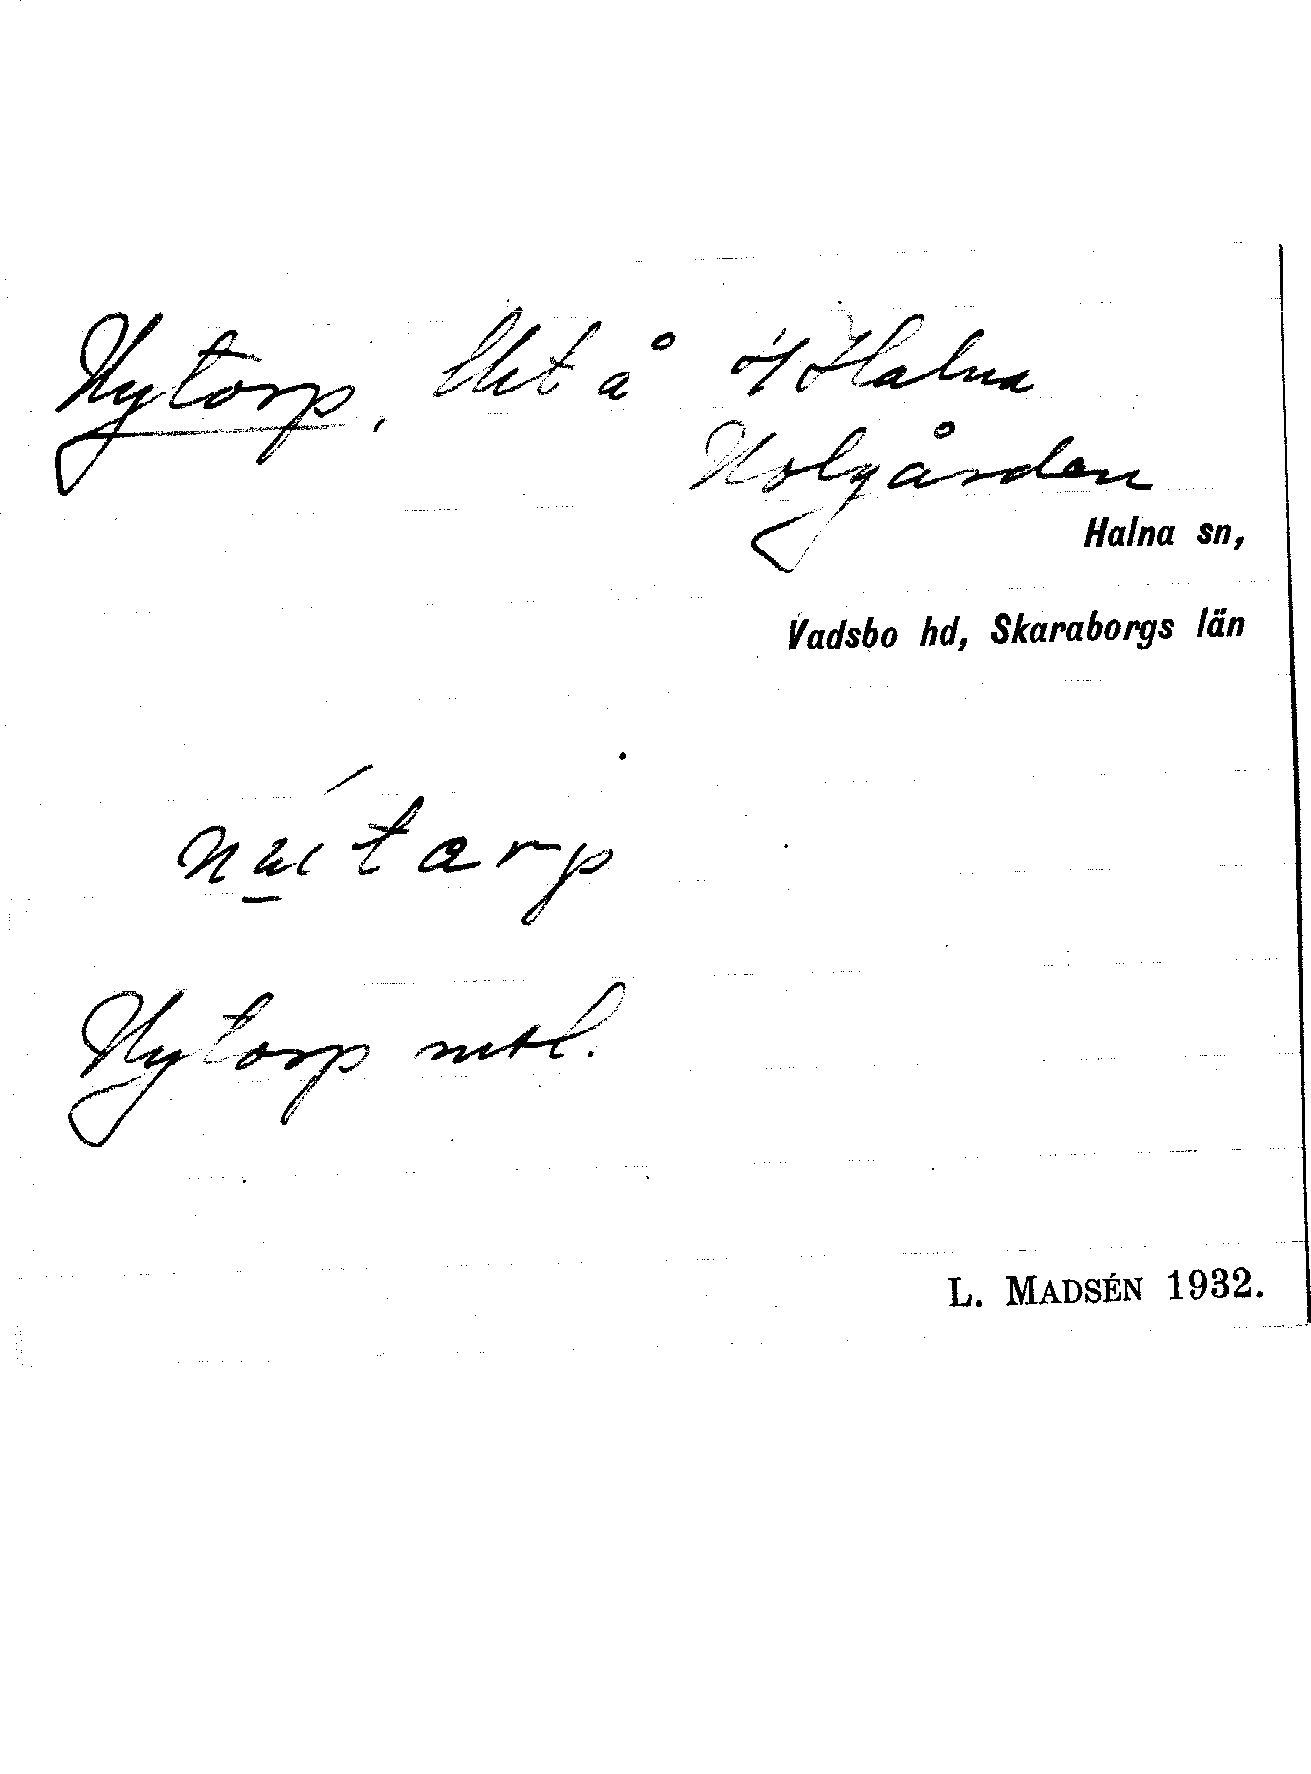 Nytorp, lht å Halna
Holgården
Halna sn,
Vadsbo hd, Skaraborgs län
Nytorp mtl.
L. MADSÉN 1932.